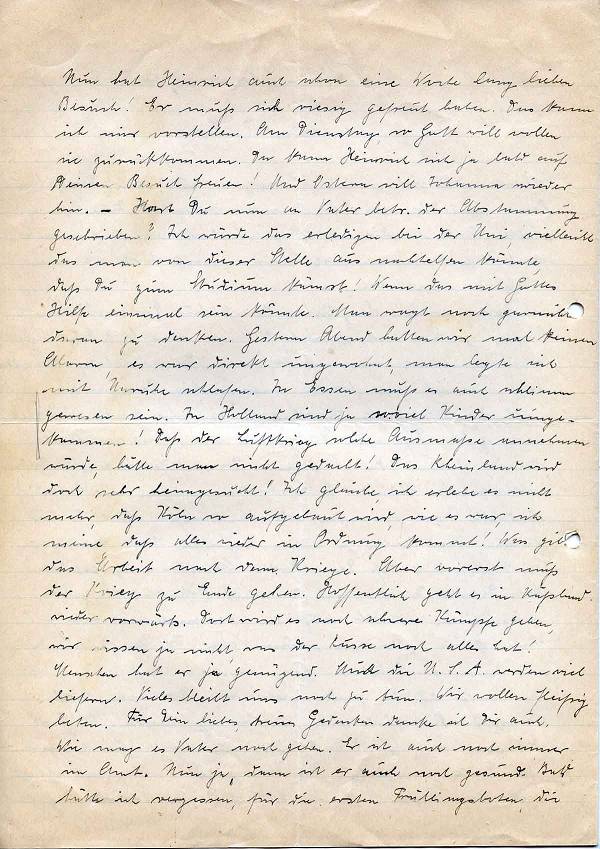 Nun hat Heinrich auch schon eine Woche lang lieben
Besuch! Er muß sich riesig gefreut haben. Das kann
ich mir vorstellen. Am Dienstag, so Gott will wollen
sie zurückkommen. Da kann Heinrich sich ja bald auf
Deinen Besuch freuen! Und Ostern will Johanna wieder
hin. – Hast Du nun an Vater betr. der Abstammung
geschrieben? Ich würde das erledigen bei der Uni, vielleicht
das man von dieser Stelle aus nachhelfen könnte,
daß Du zum Studium kämst! Wenn das mit Gottes
Hilfe einmal sein könnte. Man wagt noch garnicht
daran zu denken. Gestern Abend hatten wir mal keinen
Alarm, es war direkt ungewohnt, man legte sich
mit Unruhe schlafen. In Essen muß es auch schlimm
gewesen sein. In Holland sind ja soviel Kinder umge-
kommen! Daß der Luftkrieg solche Ausmaße annehmen
würde, hätte man nicht gedacht! Das Rheinland wird
doch sehr heimgesucht! Ich glaube ich erlebe es nicht
mehr, daß Köln so aufgebaut wird, wie es war, ich
meine daß alles wieder in Ordnung kommt! Was gibt
das Arbeit nach dem Kriege. Aber vorerst muß
der Krieg zu Ende gehen. Hoffentlich geht es in Rußland
wieder vorwärts. Dort wird es noch schwere Kämpfe geben,
wir wissen ja nicht, was der Russe noch alles hat!
Menschen hat er ja genügend. Auch die U.S.A. werden viel
liefern. Vieles bleibt uns noch zu tun. Wir wollen fleißig
beten. Für Dein liebes, treues Gedenken danke ich Dir auch.
Wie mag es Vater noch gehen. Er ist auch noch immer
im Amt. Nun ja, dann ist er auch noch gesund. Bald
hätte ich vergessen, für die ersten Frühlingsboten, die